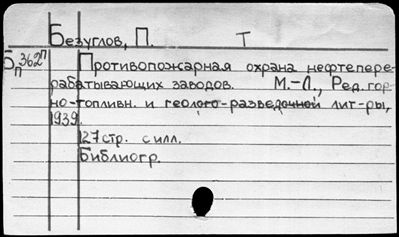 Безуглов, П. Т
Бп362п Противопожарная охрана нефтепере-
рабатывающих заводов. М.-Л., Ред. гор-
но-топливн. и геолого-разведочной лит-ры,
1939.
127стр. с илл.
Библиогр.